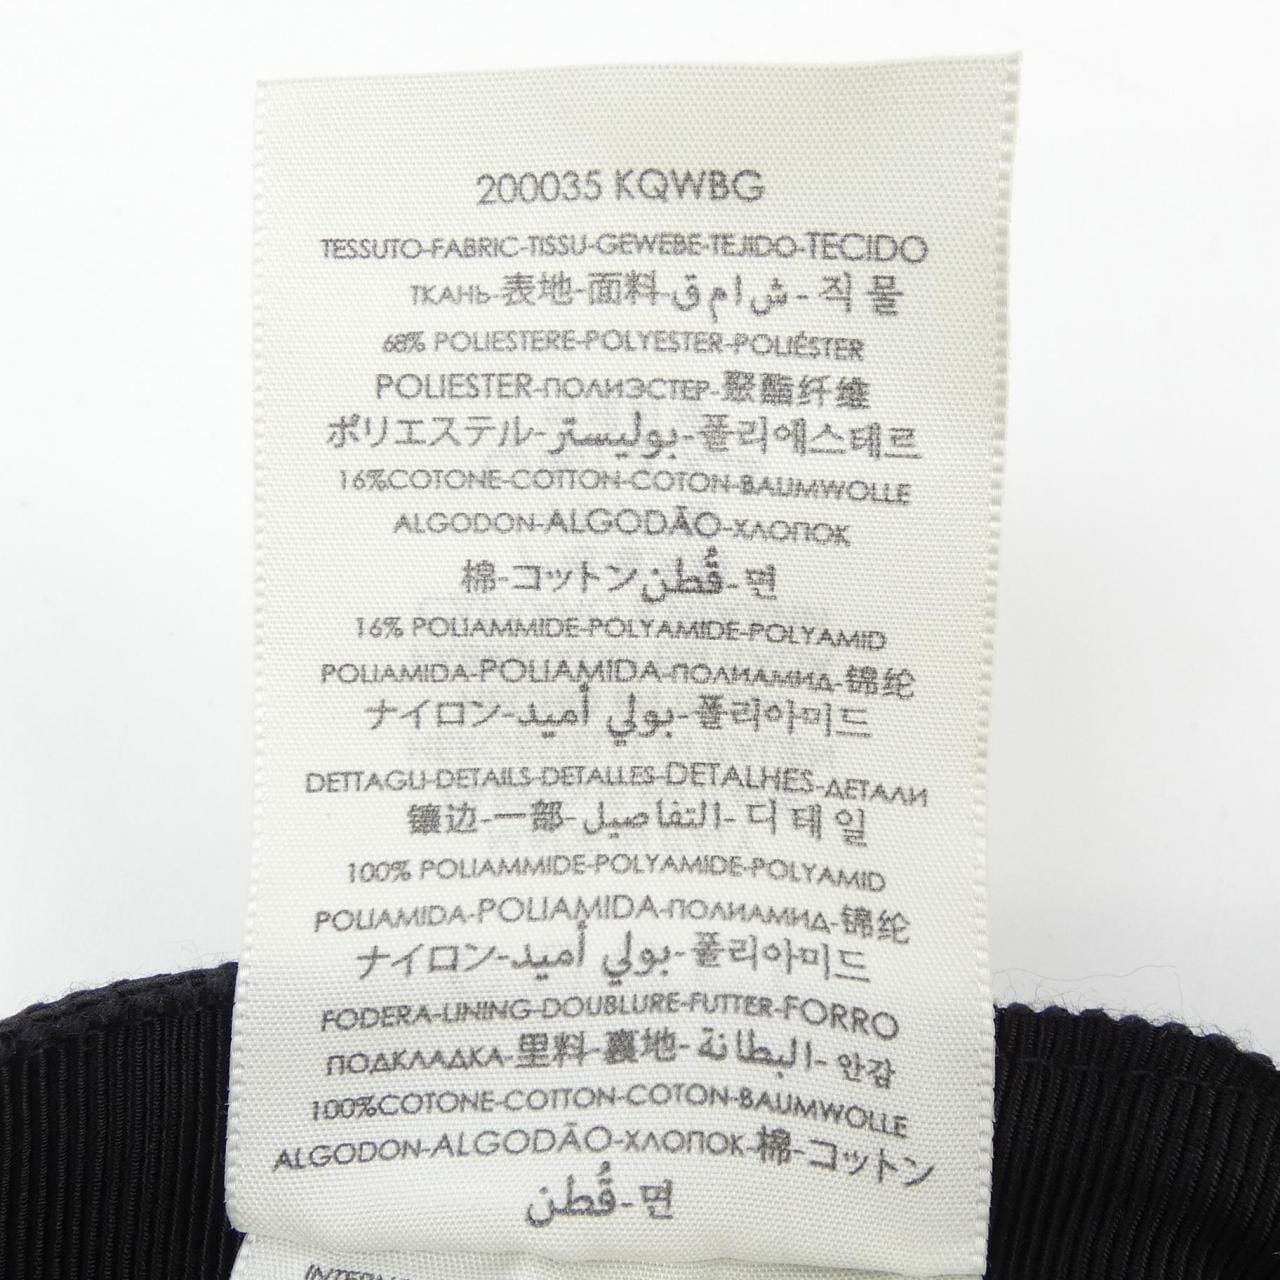 200035 KQWBG
TESSUTO-FABRIC-TISSU-GEWEBE-TEJIDO-TECIDO
ТКАНЬ-表地-面料-ش ا م ق-직 물
68% POLIESTERE-POLYESTER-POLIÉSTER
POLIESTER-ПОЛИЭСТЕР-聚酯纤维
ポリエステル-بوليستر-폴리에스테르
16%COTONE-COTTON-COTON-BAUMWOLLE
ALGODON-ALGODÃO-ХЛОПОК
棉-コットンقُطن-면
16% POLIAMMIDE-POLYAMIDE-POLYAMID
POLIAMIDA-POLIAMIDA-ПОЛИАМИД-锦纶
ナイロン-بولي أميد-폴리아미드
DETTAGLI-DETAILS-DETALLES-DETALHES-ДЕТАЛИ
镶边-一部-التفاصيل-디 테 일
100% POLIAMMIDE-POLYAMIDE-POLYAMID
POLIAMIDA-POLIAMIDA-ПОЛИАМИД-锦纶
ナイロン-بولي أميد-폴리아미드
FODERA-LINING-DOUBLURE-FUTTER-FORRO
ПОДКЛАДКА-里料-裏地-البطانة-안감
100%COTONE-COTTON-COTON-BAUMWOLLE
ALGODON-ALGODÃO-ХЛОПОК-棉-コットン
قُطن-면